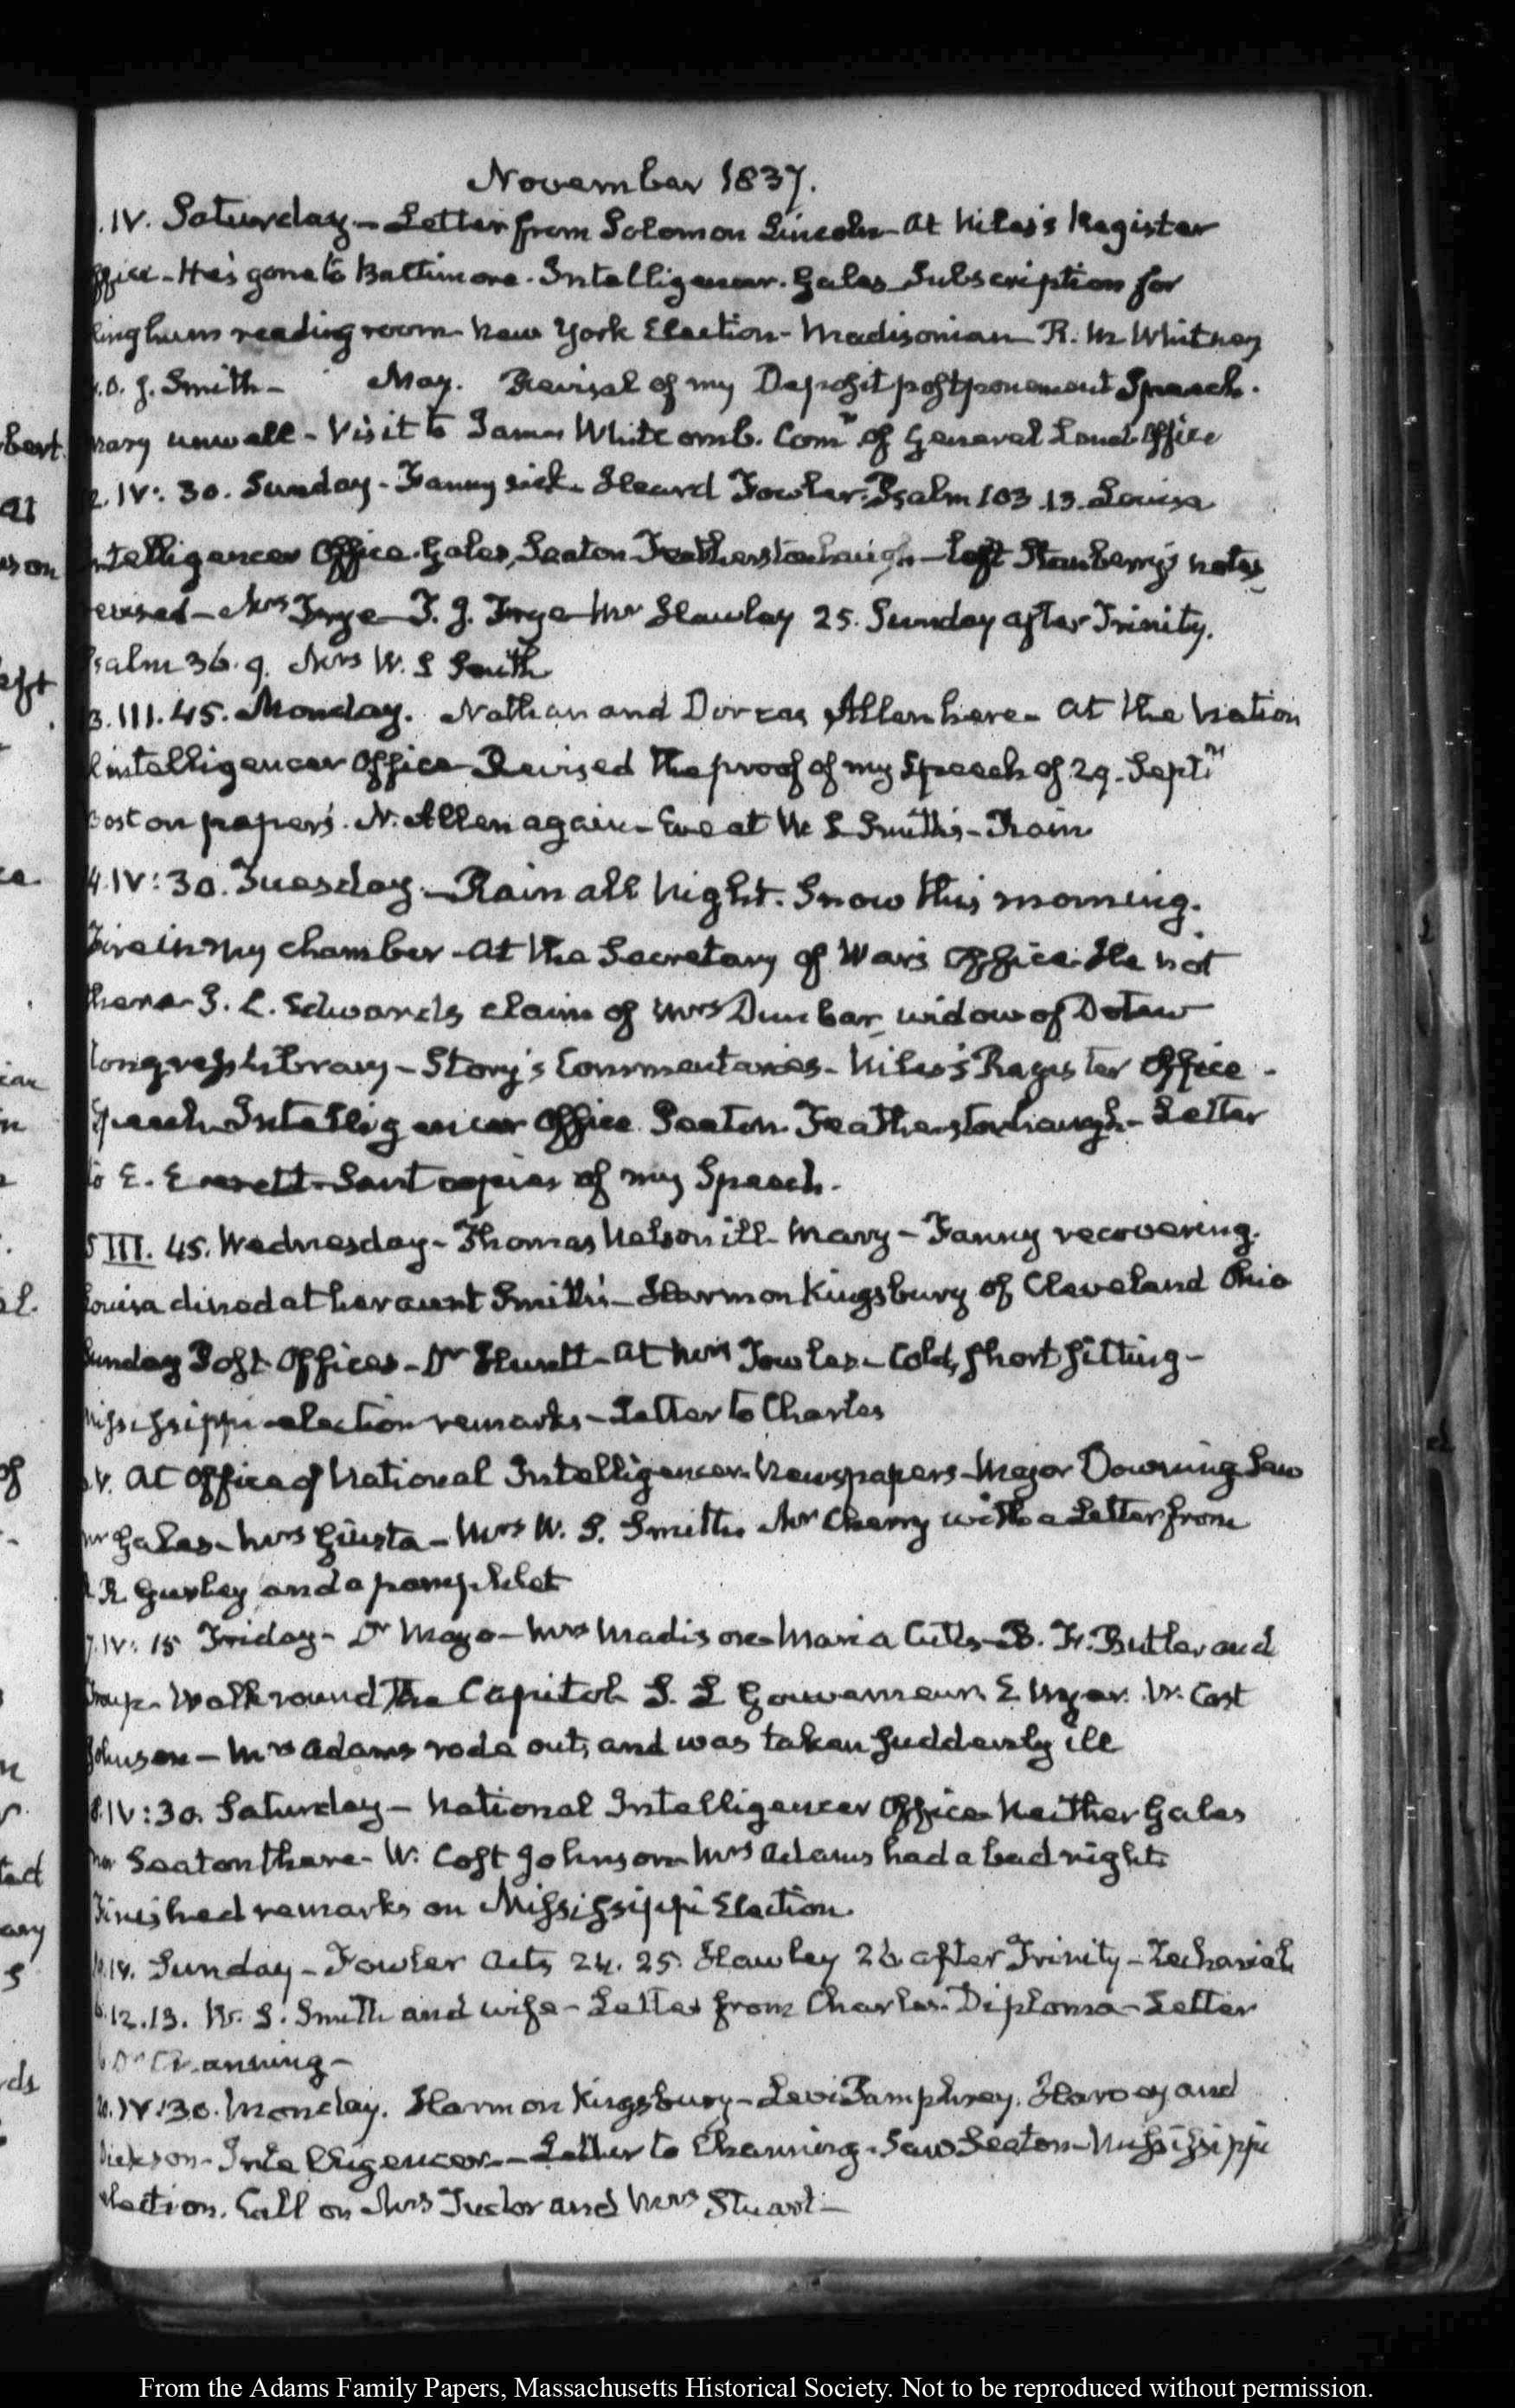 November 1837.
IV. Saturday – Letter from Solomon Lincoln – At Niles's Register
ffice – He's gone to Baltimore. Intelligencer. Gales Subscription for
lingham reading room – New York Election – Madisonian R. M Whitney
O. J. Smith – May. Revisal of my Deposit postponement Speech.
mary unwell – Visit to James Whitcomb. Comr. of General Land Office
2. IV: 30. Sunday – Fanny sick – Heard Fowler. Psalm 103.13. Louisa
ntelligencer Office. Gales, Seaton Featherstonhaugh – left Stansberry's notes
revised – Mrs Frye – T. J. Frye – Mr Hawley 25. Sunday after Trinity.
Psalm 36.9. Mrs W. S Smith
3. III. 45. Monday. Nathan and Dorcas Allen here – At the Nation
l intelligencer Office – Revised the proof of my Speech of 29. Septr
Boston papers. N. Allen again – Eve at W. S Smith's – Rain
4. IV: 30. Tuesday – Rain all Night. Snow this morning.
Fire in my chamber – At the Secretary of War's Office. He not
there – J. L. Edwards claim of Mrs Dunbar widow of
Congress Library – Story's Commentaries – Niles's Register Office –
Speech Intelligencer Office Seaton Featherstonhaugh – Letter
to E. Everett – Sent copies of my Speech.
5 III. 45. Wednesday – Thomas Nelson ill – Mary – Fanny recovering.
Louisa dined at her aunt Smith's – Harmon Kingsbury of Cleveland Ohio
Sunday Post Offices – Dr Huntt – At Mrs Towles – Cold, short sitting –
Mississippi election remarks – Letter to Charles
V. At Office of National Intelligencer. Newspapers – Major Downing Saw
Mr Gales – Mrs Giusta – Mrs W. S. Smith. Mr Cherry with a Letter from
R Gurley and a pamphlet
7. IV: 15 Friday – Dr Mayo – Mrs Madison – Maria Cutts – B. F. Butler and
– Walk round the Capitol S. L Gouverneur. W. Cost
Johnson – Mrs Adams rode out, and was taken suddenly ill
8. IV: 30. Saturday – National Intelligencer Office – Neither Gales
nor Seaton there – W. Cost Johnson – Mrs Adams had a bad night.
Finished remarks on Mississippi Election.
Sunday – Fowler Acts 24. 25. Hawley 26 after Trinity – Zechariah
6.12.13. W. S. Smith and wife – Letter from Charles – Diploma – Letter
to Dr Channing –
20. IV: 30. Monday. Harmon Kingsbury – Levi Pumphrey. Harvey and
Dickson – Intelligencer – Letter to Channing – Saw Seaton – Mississippi
election. Call on Mrs Tudor and Mrs Stuart –
From the Adams Family Papers, Massachusetts Historical Society. Not to be reproduced without permission.